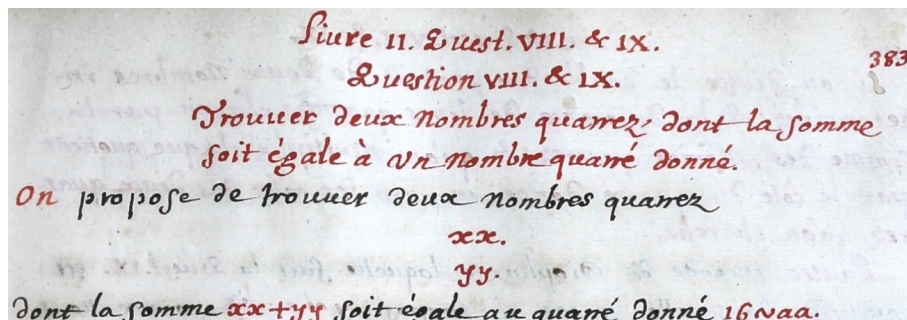 Livre II. Quest. VIII. & IX.
383
Question VIII. & IX.
Trouver deux Nombres quarrez, dont la somme
soit égale à un Nombre quarré donné.
On propose de trouver deux Nombres quarrez
xx.
yy.
dont la somme xx + yy soit égale au quarré donné 16 ~ aa.